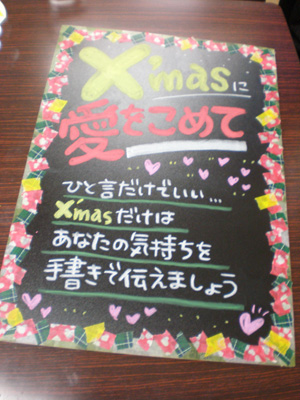 X'masに
愛をこめて
ひと言だけでいい...
X'masだけは
あなたの気持ちを
手書きで伝えましょう